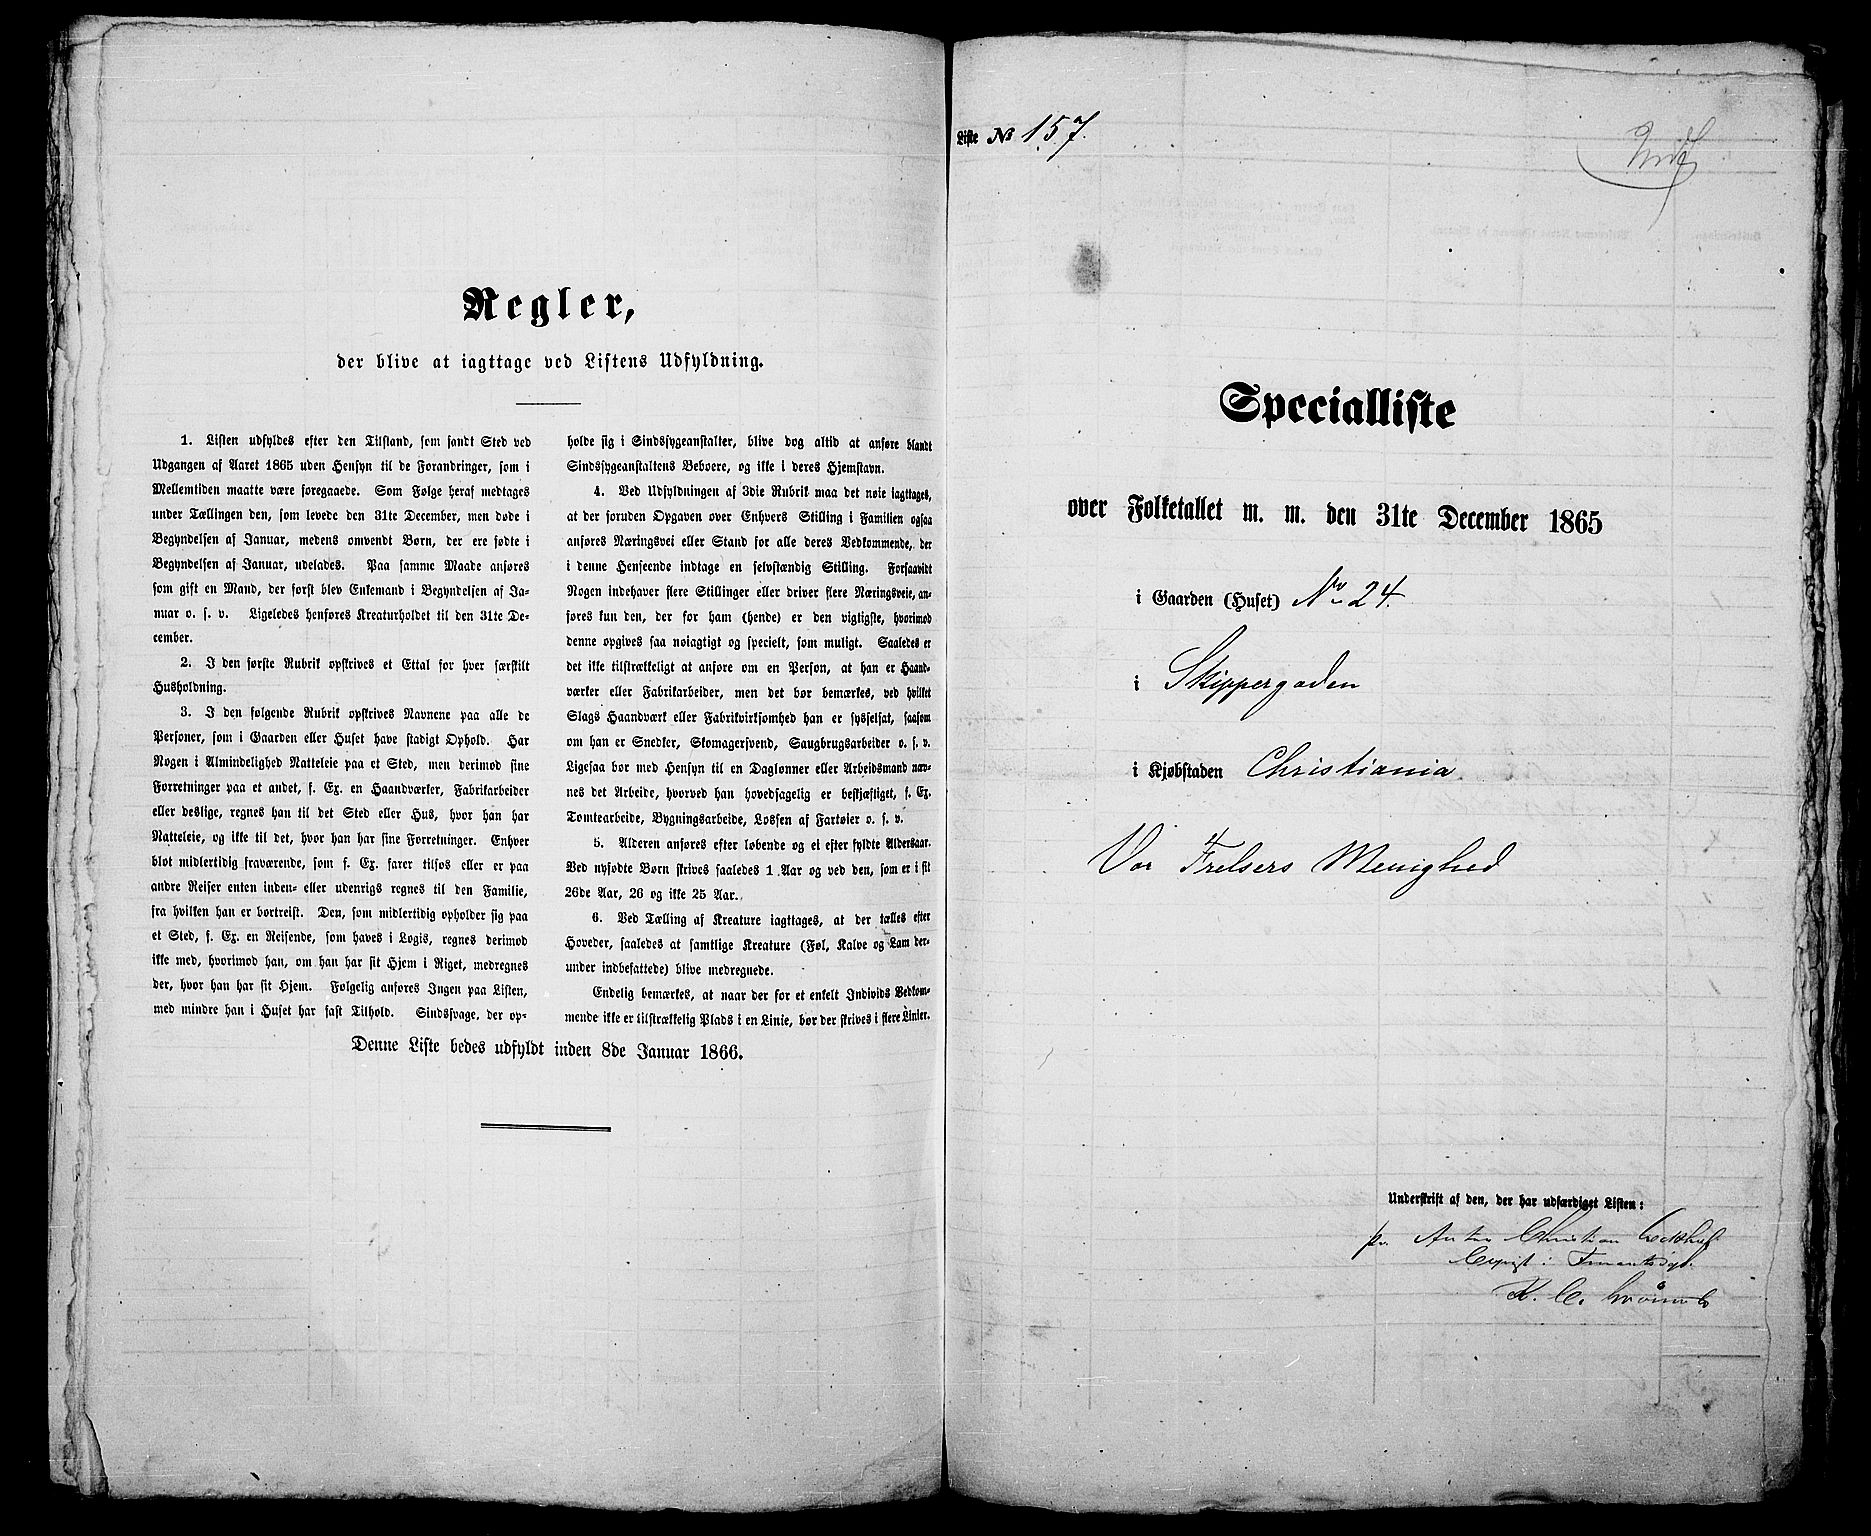 Regler,
der blive at iagttage ved Listens Udfyldning.
1. Listen udfyldes efter den Tilstand, som fandt Sted ved
Udgangen af Aaret 1865 uden Hensyn til de Forandringer, som i
Mellemtiden maatte være foregaaede. Som Følge heraf medtages
under Tællingen den, som levede den 31te December, men døde i
Begyndelsen af Januar, medens omvendt Børn, der ere fødte i
Begyndelsen af Januar, udelades. Paa samme Maade anføres
som gift en Mand, der først blev Enkemand i Begyndelsen af Ja-
nuar o. s. v. Ligeledes henføres Kreaturholdet til den 31te De-
cember.
2. I den første Rubrik opskrives et Ettal for hver særskilt
Husholdning.
3. I den følgende Rubrik opskrives Navnene paa alle de
Personer, som i Gaarden eller Huset have stadigt Ophold. Har
Nogen i Almindelighed Natteleie paa et Sted, men derimod sine
Forretninger paa et andet, f. Ex. en Haandværker, Fabrikarbeider
eller deslige, regnes han til det Sted eller Hus, hvor han har
Natteleie, og ikke til det, hvor han har sine Forretninger. Enhver
blot midlertidig fraværende, som f. Ex. farer tilsøs eller er paa
andre Reiser enten inden- eller udenrigs regnes til den Familie,
fra hvilken han er bortreist. Den, som midlertidig opholder sig paa
et Sted, f. Ex. en Reisende, som haves i Logis, regnes derimod
ikke med, hvorimod han, om han har sit Hjem i Riget, medregnes
der, hvor han har sit Hjem. Følgelig anføres Ingen paa Listen,
med mindre han i Huset har fast Tilhold. Sindssvage, der op-
holde sig i Sindssygeanstalter, blive dog altid at anføre blandt
Sindssygeanstaltens Beboere, og ikke i deres Hjemstavn.
4. Ved Udfyldningen af 3die Rubrik maa det nøie iagttages,
at der foruden Opgaven over Enhvers Stilling i Familien ogsaa
anføres Næringsvei eller Stand for alle deres Vedkommende, der
i denne Henseende indtage en selvstændig Stilling. Forsaavidt
Nogen indehaver flere Stillinger eller driver flere Næringsveie, an-
føres kun den, der for ham (hende) er den vigtigste, hvorimod
denne opgives saa nøiagtigt og specielt, som muligt. Saaledes er
det ikke tilstrækkeligt at anføre om en Person, at han er Haand-
værker eller Fabrikarbeider, men det bør bemærkes, ved hvilket
Slags Haandværk eller Fabrikvirksomhed han er sysselsat, saasom
om han er Snedker, Skomagersvend, Saugbrugsarbeider o. s. v.
Ligesaa bør med Hensyn til en Daglønner eller Arbeidsmand næv-
nes det Arbeide, hvorved han hovedsagelig er beskjæftiget, f. Ex.
Tomtearbeide, Bygningsarbeide, Lossen af Fartøier o. s. v.
5. Alderen anføres efter løbende og ei efter fyldte Aldersaar.
Ved nyfødte Børn skrives saaledes 1 Aar og ved den, som er i sit
26de Aar, 26 og ikke 25 Aar.
6. Ved Tælling af Kreature iagttages, at der tælles efter
Hoveder, saaledes at samtlige Kreature (Føl, Kalve og Lam der-
under indbefattede) blive medregnede.
Endelig bemærkes, at naar der for et enkelt Individs Vedkom-
mende ikke er tilstrækkelig Plads i en Linie, bør der skrives i flere Linier.
Denne Liste bedes udfyldt inden 8de Januar 1866.
Liste № 157.
Specialliste
over Folketallet m. m. den 31te December 1865
i Gaarden (Huset) No 24.
i Skippergaden
i Kjøbstaden Christiania.
Vor Frelsers Menighed
Underskrift af den, der har udfærdiget Listen:
pr. Christian
K. C.